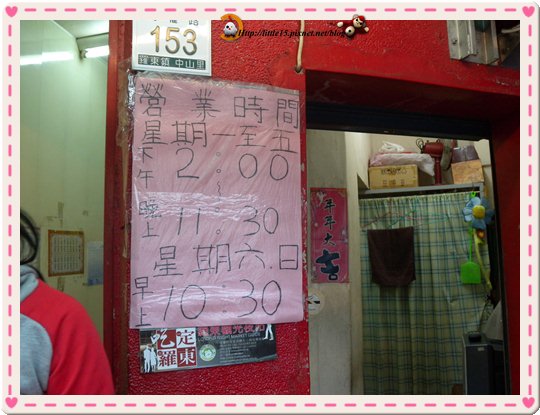 http://little15.pixnet.net/blog
153
羅東鎮 中山里
營業時間
星期一至五
下午 2:00
~
晚上 11:30
星期六.日
早上 10 30
年年大吉
吃定羅東